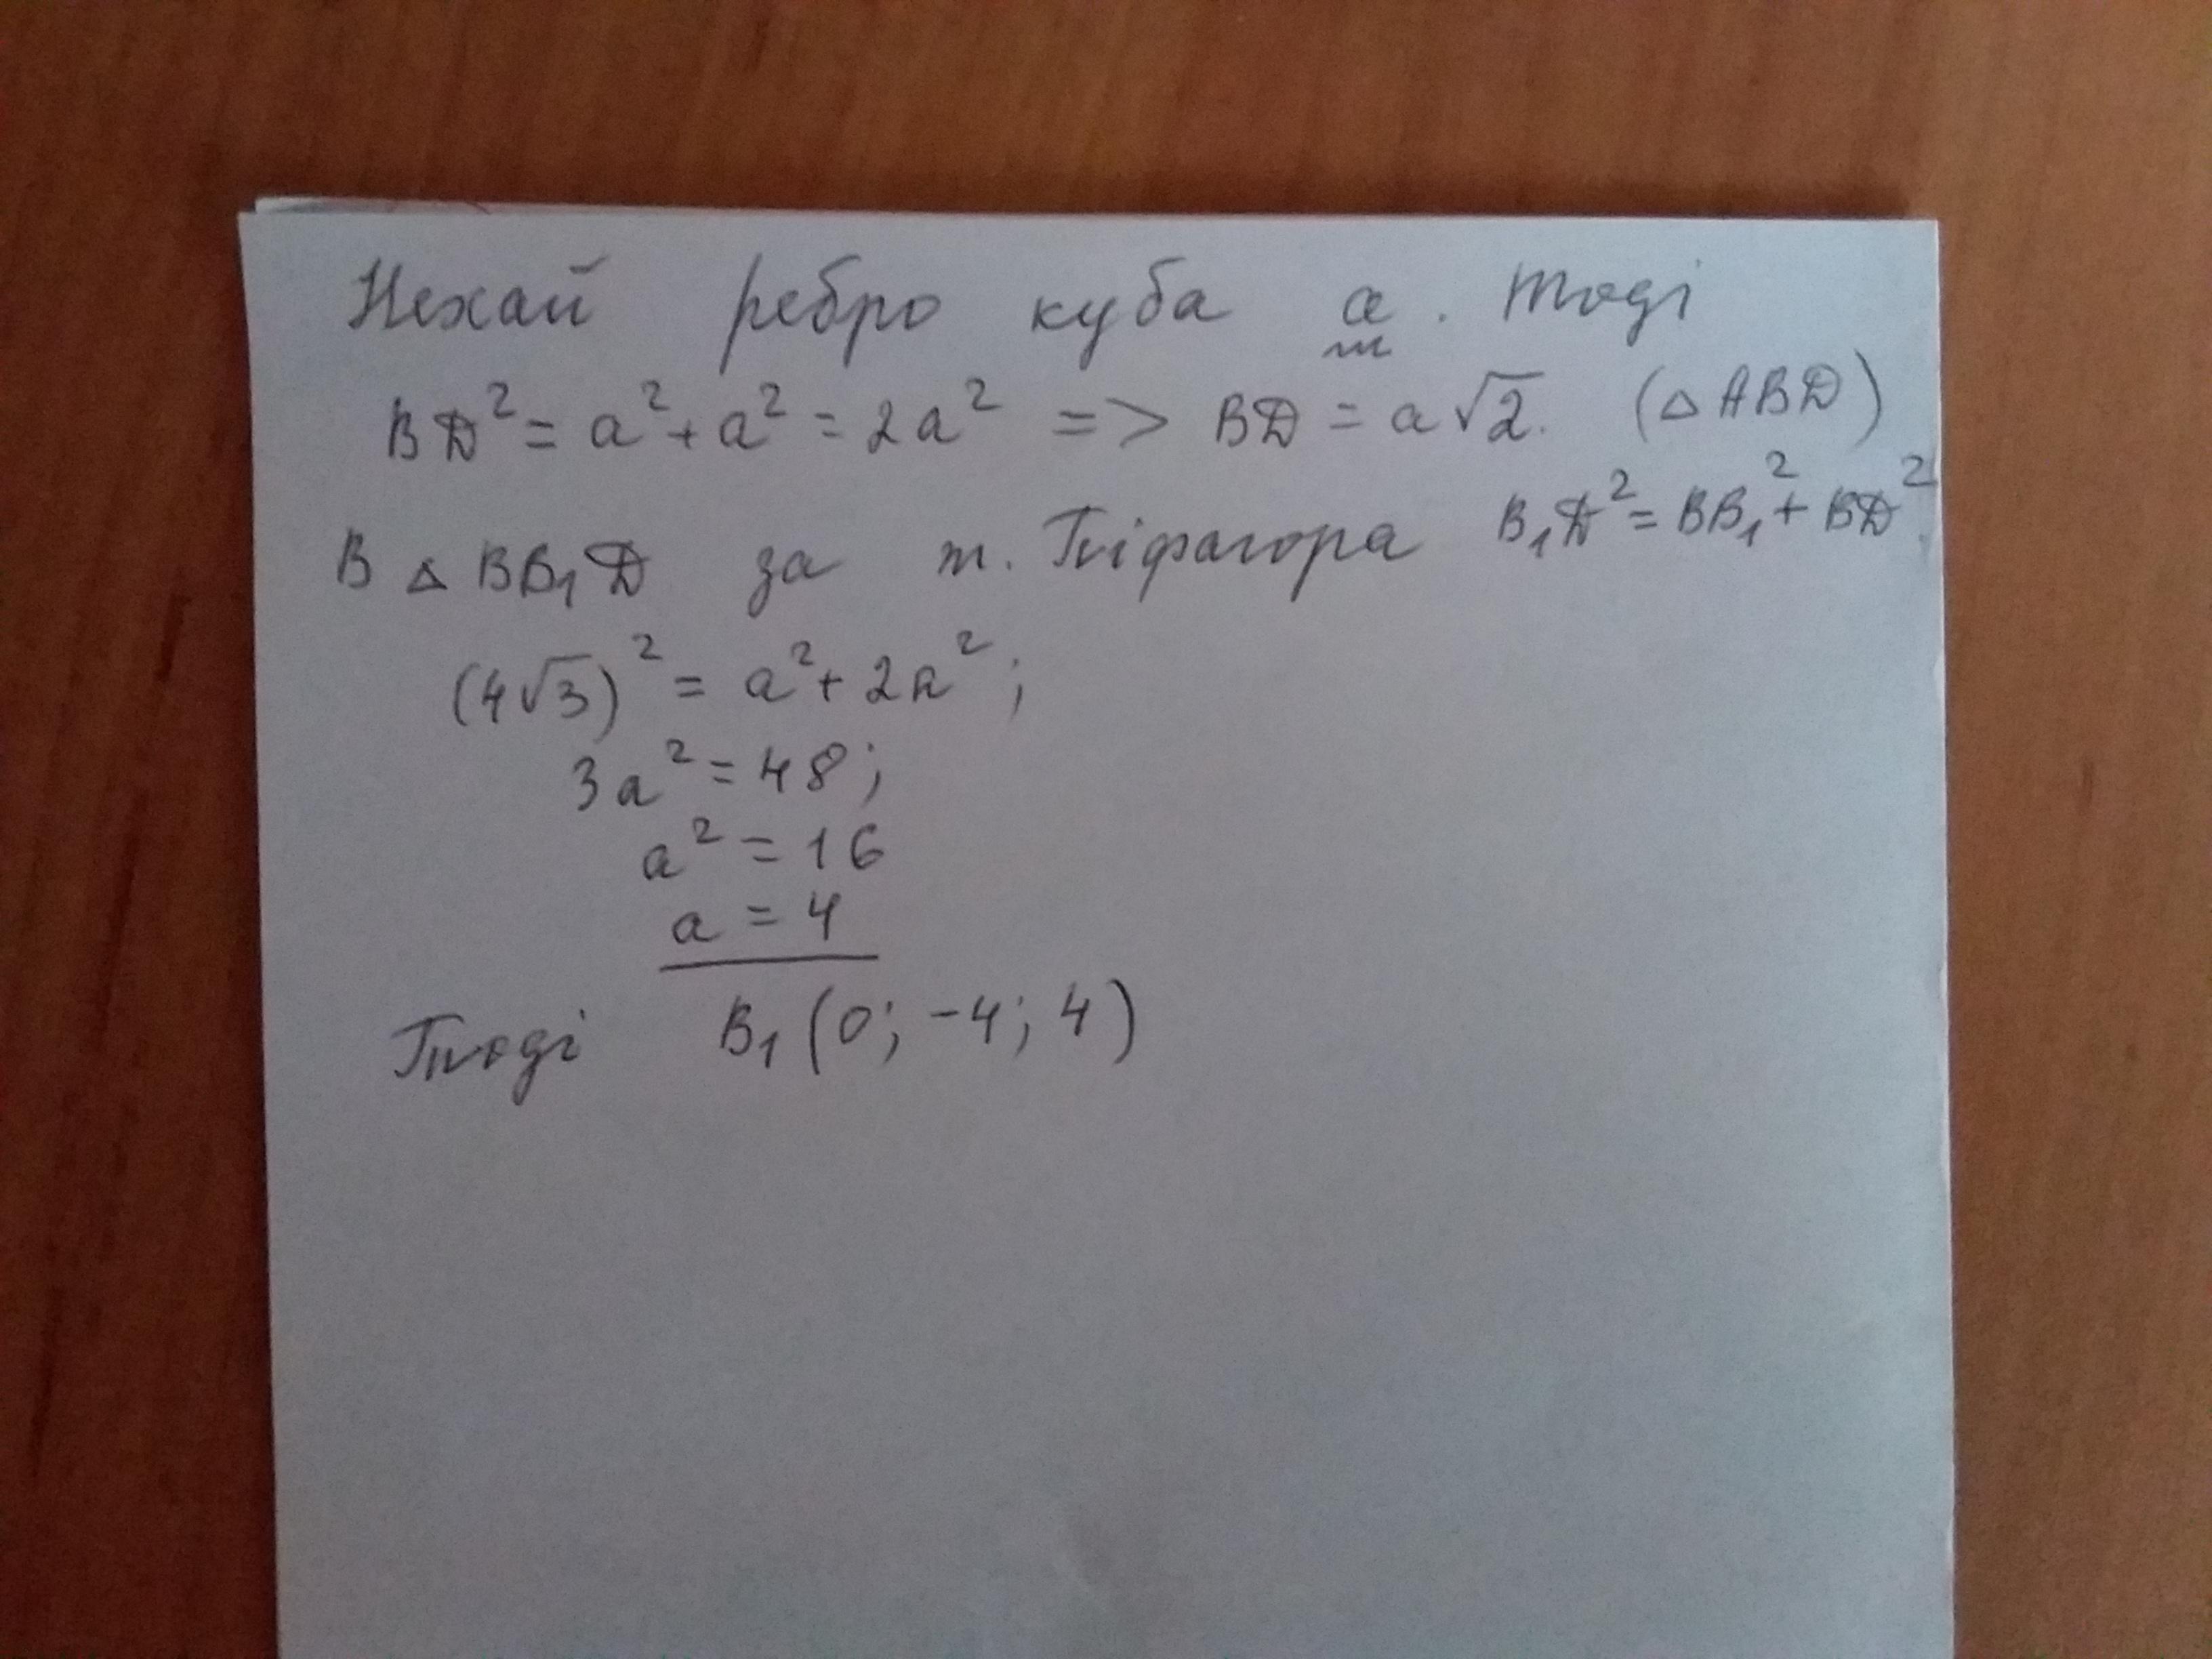 Нехай ребро куба a. Тоді
BD² = a² + a² = 2a² => BD = a√2. (△ABD)
В △BB₁D за т. Піфагора B₁D² = BB₁² + BD².
(4√3)² = a² + 2a²;
3a² = 48;
a² = 16
a = 4
Тоді B₁(0; -4; 4)